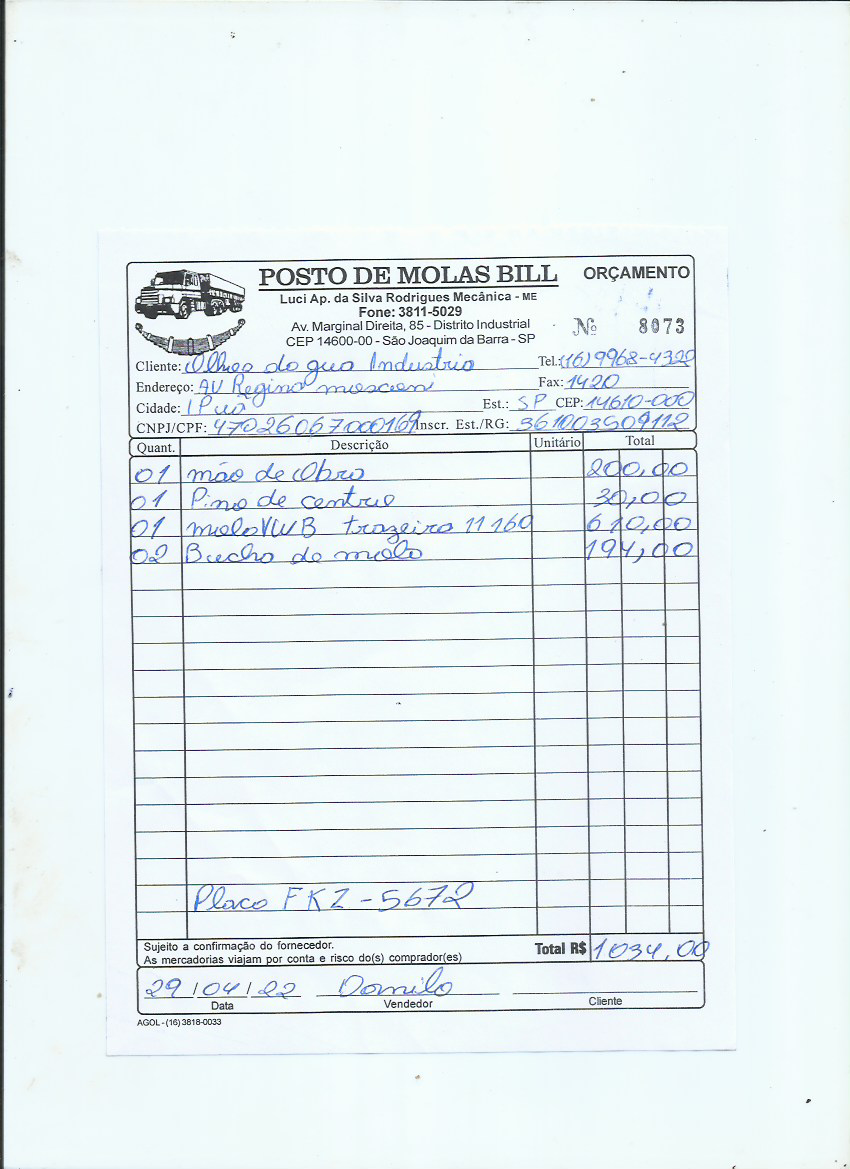 POSTO DE MOLAS BILL
ORÇAMENTO
Luci Ap. da Silva Rodrigues Mecânica - ME
Fone: 3811-5029
Av. Marginal Direita, 85 - Distrito Industrial
CEP 14600-00 - São Joaquim da Barra - SP
Nº 8073
Cliente: Industria Tel.: (16) 9968-4320
Endereço: AV Regina Fax: 1420
Cidade: IPuã Est.: SP CEP: 14610-000
CNPJ/CPF: 47026067000169 Inscr. Est./RG: 361003509112
Quant. Descrição Unitário Total
01 mão de Obra 200,00
01 Pino de centro 30,00
01 mola VWB trazeira 11160 610,00
02 Bucha da mola 194,00
Placa FKZ-5672
Sujeito a confirmação do fornecedor.
As mercadorias viajam por conta e risco do(s) comprador(es)
Total R$ 1034,00
29/04/22 Danilo
Data Vendedor Cliente
AGOL - (16) 3818-0033